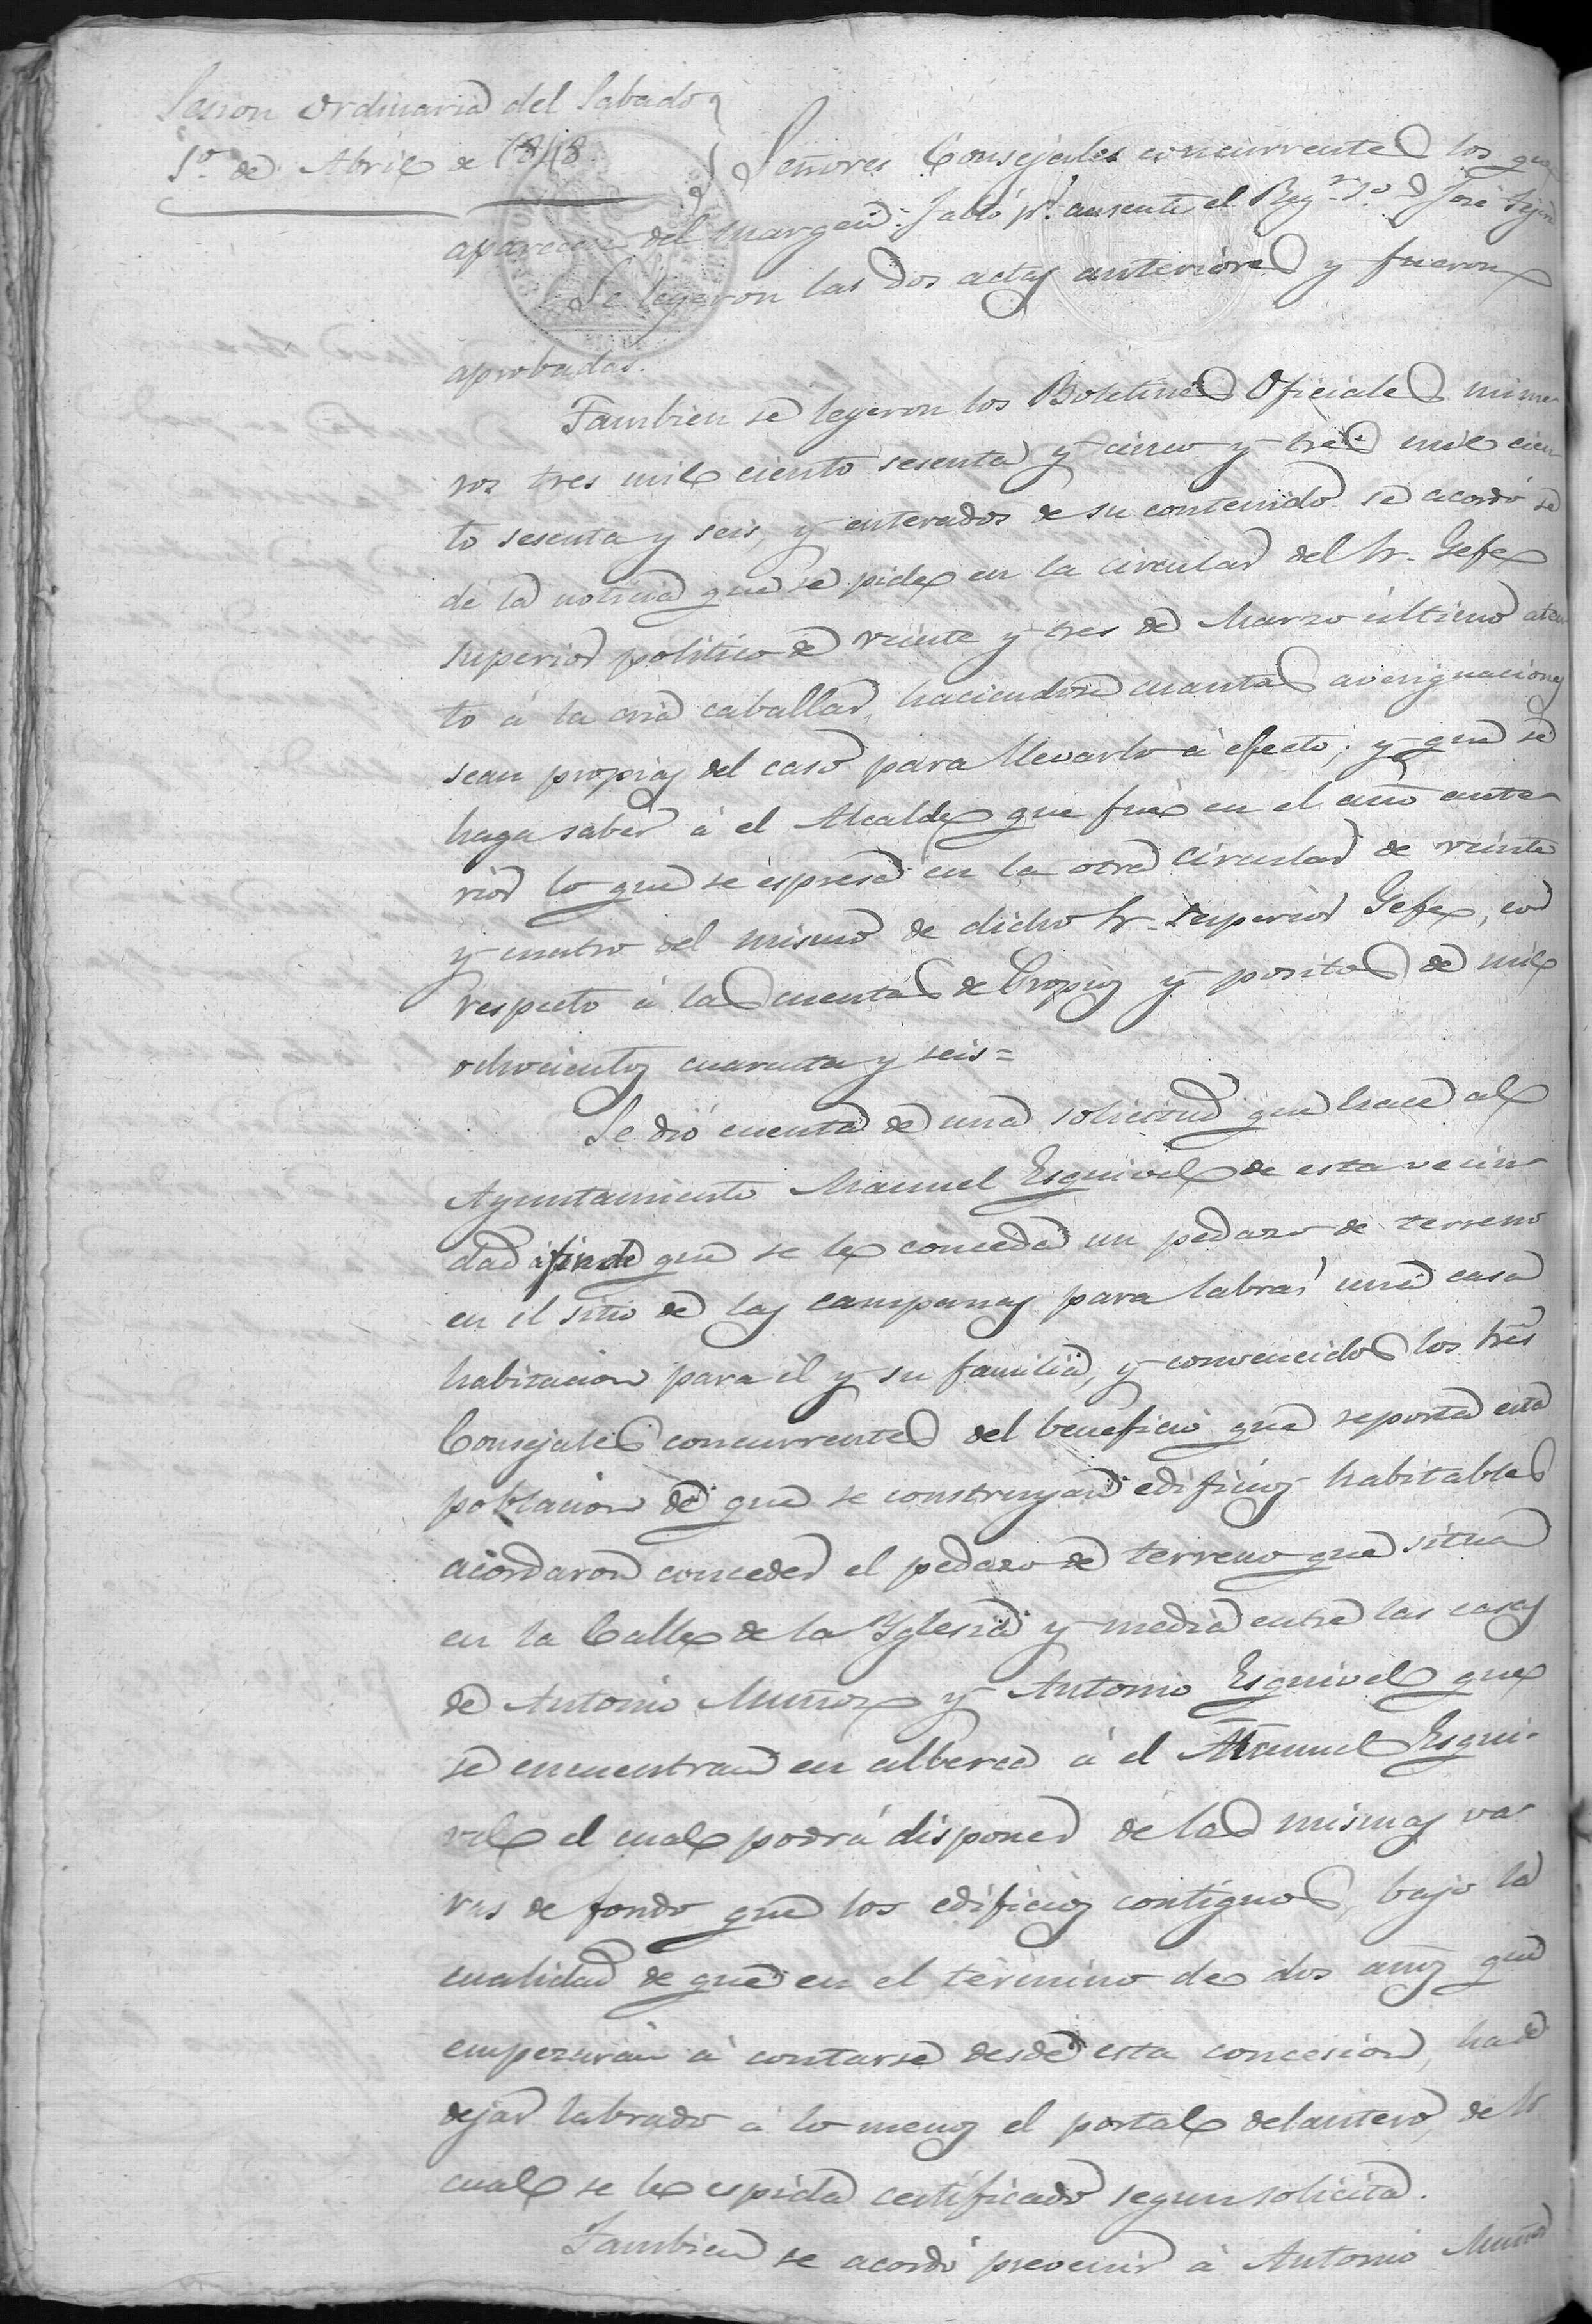 Sesion Ordinaria del Sabado
1º de Abril de 1848
Señores Consejales concurrentes los que
aparecen del margen: Faltó pr. ausente el Regr. 1º D José
Se leyeron las dos actas anteriores y fueron
aprobadas.
Tambien se leyeron los Boletines Oficiales nume
ros tres mil ciento sesenta y cinco y tres mil cien
to sesenta y seis, y enterados de su contenido se acordó se
dé la noticia que se pide en la circular del Sr. Gefe
superior politico de veinte y tres de Marzo ultimo aten
to á la cria caballar, haciendose cuantas averiguaciones
sean propias del caso para llevarlo á efecto; y que se
haga saber á el Alcalde que fué en el año ante
rior lo que se espresa en la otra circular de veinte
y cuatro del mismo de dicho Sr. Superior Gefe, con
respecto á las cuentas de Propios y positos de mil
ochocientos cuarenta y seis=
Se dió cuenta de una solicitud que hace al
Ayuntamiento Manuel Esquivel de esta vecin
dad á fin de que se le conceda un pedazo de terreno
en el sitio de las campanas para labrar una casa
habitacion para él y su familia, y convencidos los tres
Consejales concurrentes del beneficio que reporta esta
poblacion de que se construyan edificios habitables
acordaron conceder el pedazo de terreno que situa
en la Calle de la Yglesia y media entre las casas
de Antonio Muñoz y Antonio Esquivel que
se encuentran en alberca á el Manuel Esqui-
vel el cual podrá disponer de las mismas va
ras de fondo que los edificios contiguos, bajo la
cualidad de que en el término de dos años que
empezarán á contarse desde esta concesion, ha de
dejar labrado á lo menos el portal delantero, de lo
cual se le espida certificado segun solicita.
Tambien se acordó prevenir á Antonio Muñoz